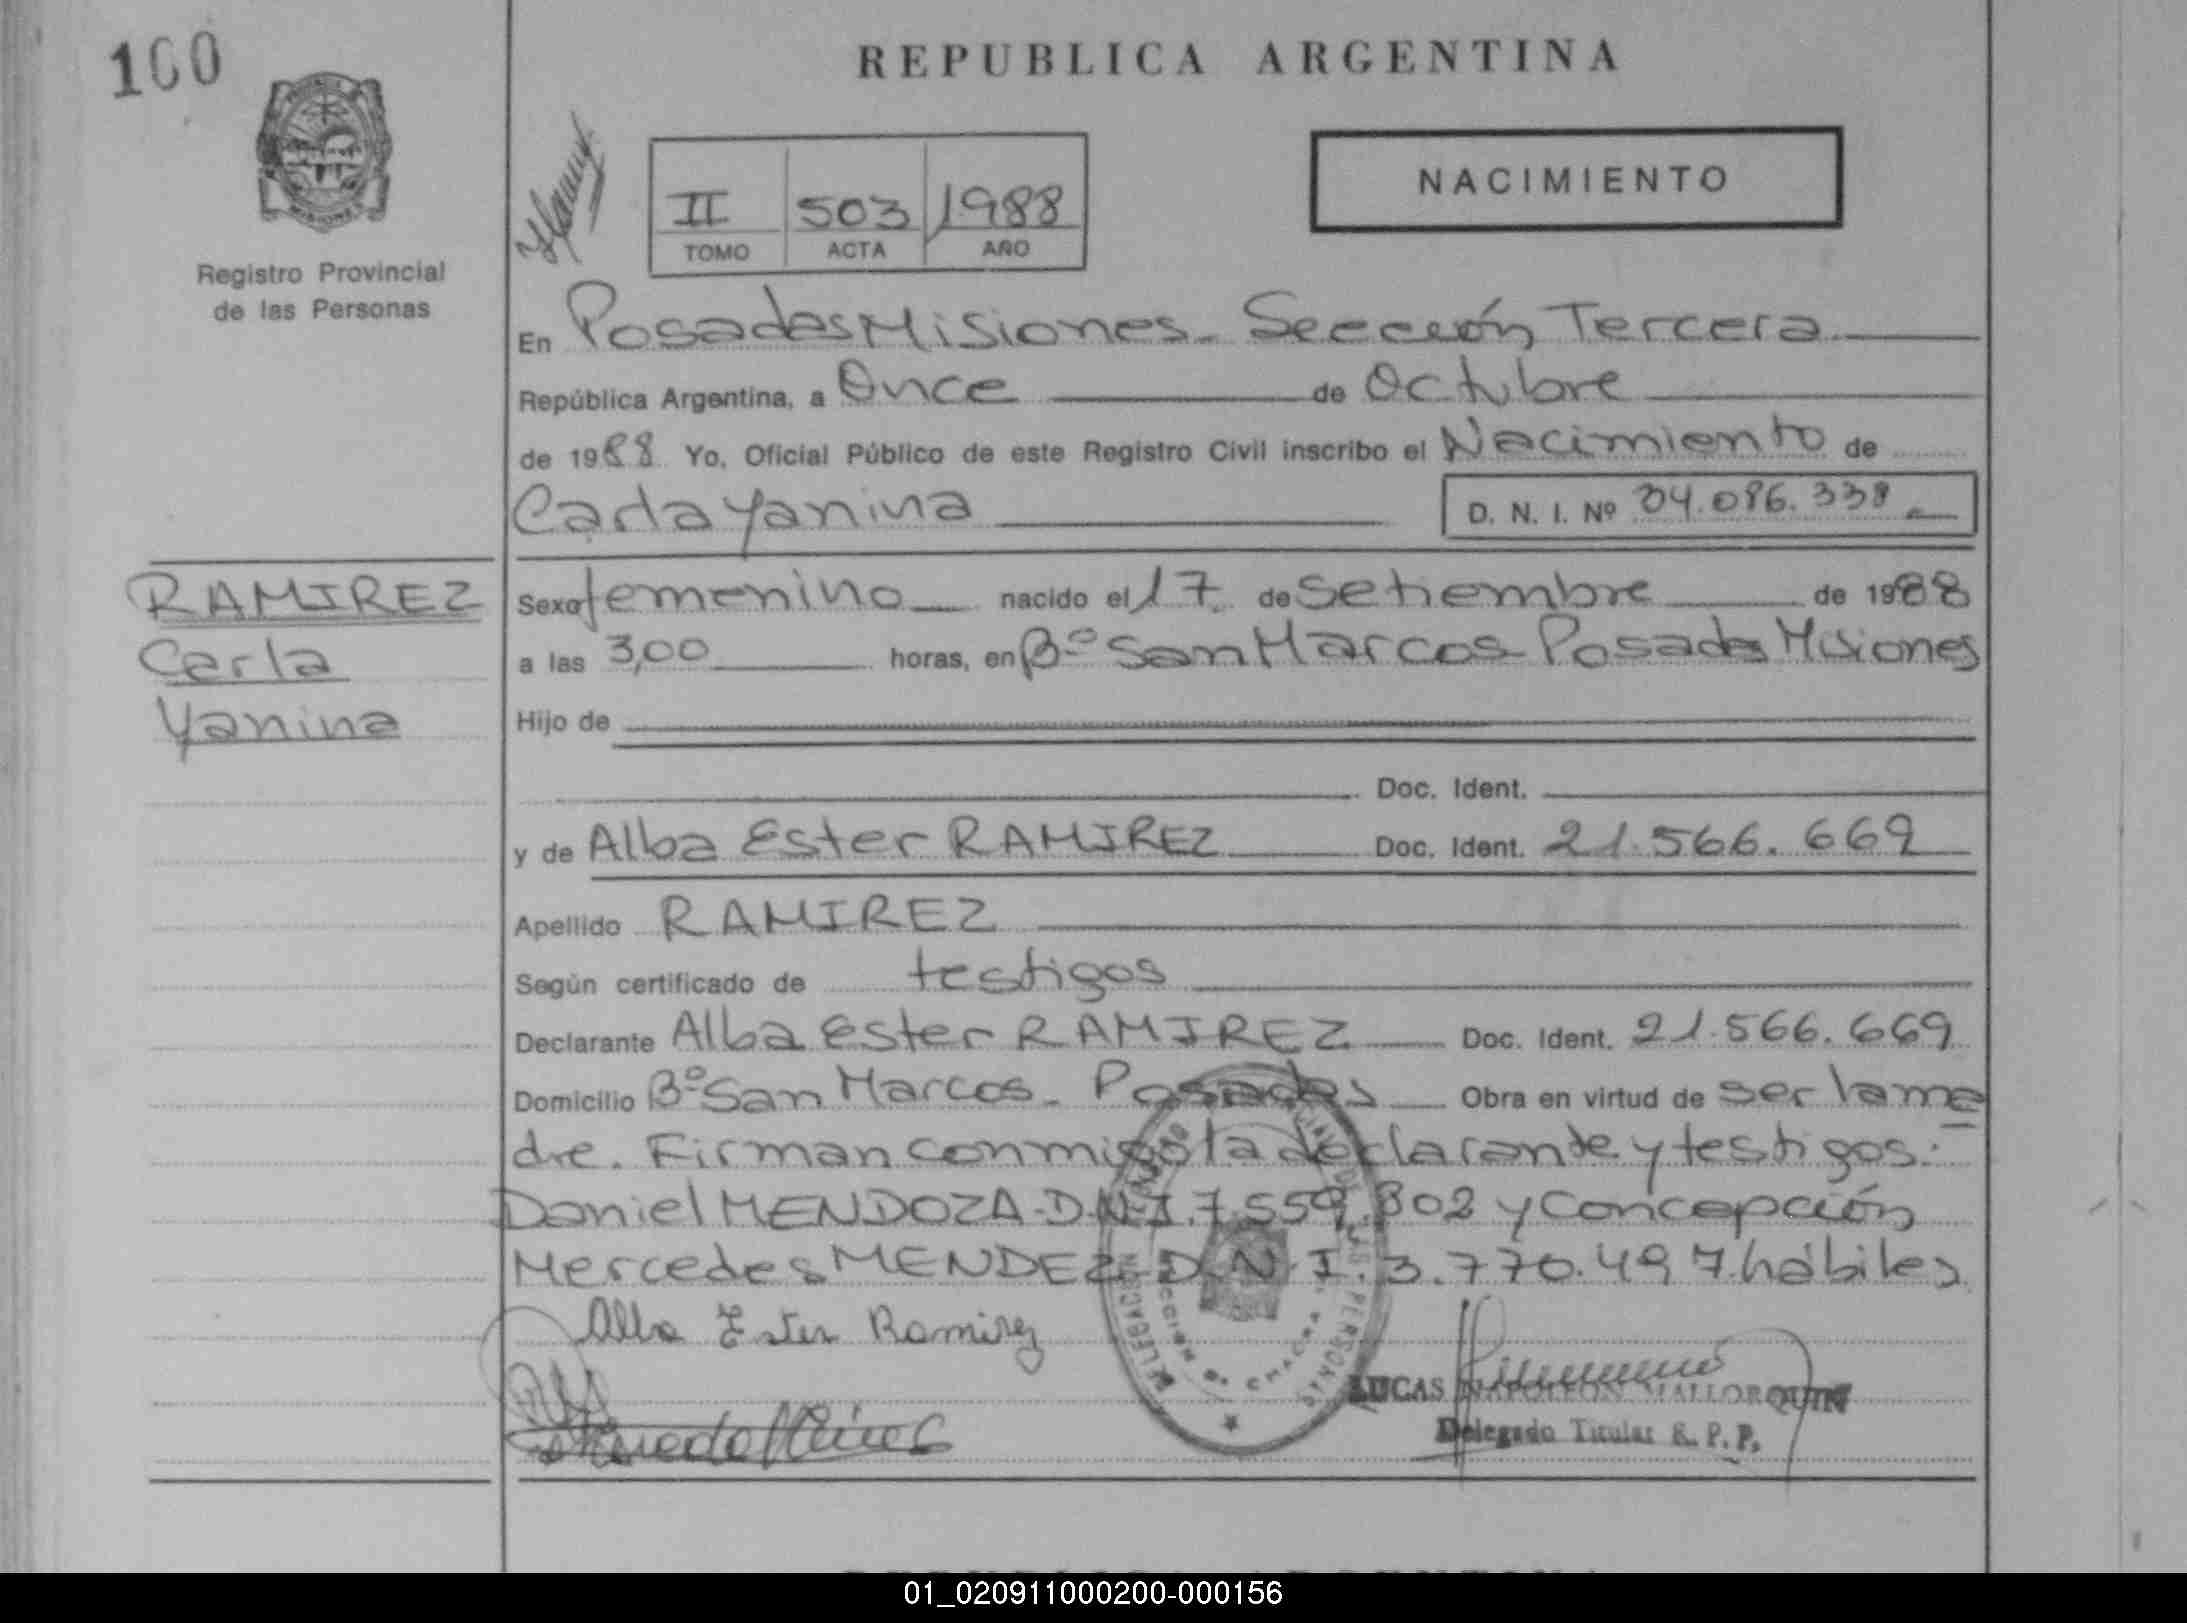 100
REPUBLICA ARGENTINA
NACIMIENTO
II 503 1988
TOMO ACTA AÑO
MISIONES
Registro Provincial
de las Personas
En Posadas Misiones. Sección Tercera
República Argentina, a Once de Octubre
de 1988 Yo, Oficial Público de este Registro Civil inscribo el Nacimiento de
Carla Yanina D. N. I. Nº 34.086.338
RAMIREZ
Carla
Yanina
Sexo femenino nacido el 17 de Setiembre de 1988
a las 3,00 horas, en Bº San Marcos Posadas Misiones
Hijo de
Doc. Ident.
y de Alba Ester RAMIREZ Doc. Ident. 21.566.669
Apellido RAMIREZ
Según certificado de testigos
Declarante Alba Ester RAMIREZ Doc. Ident. 21.566.669
Domicilio Bº San Marcos. Posadas Obra en virtud de ser la ma
dre. Firman conmigo la declarante y testigos:
Daniel MENDOZA. D.N.I. 7.559.802 y Concepción
Mercedes MENDEZ D.N.I. 3.770.497 hábiles
Alba Ester Ramirez
LUCAS NAPOLEON MALLORQUIN
Delegado Titular R. P. P.
01_020911000200-000156